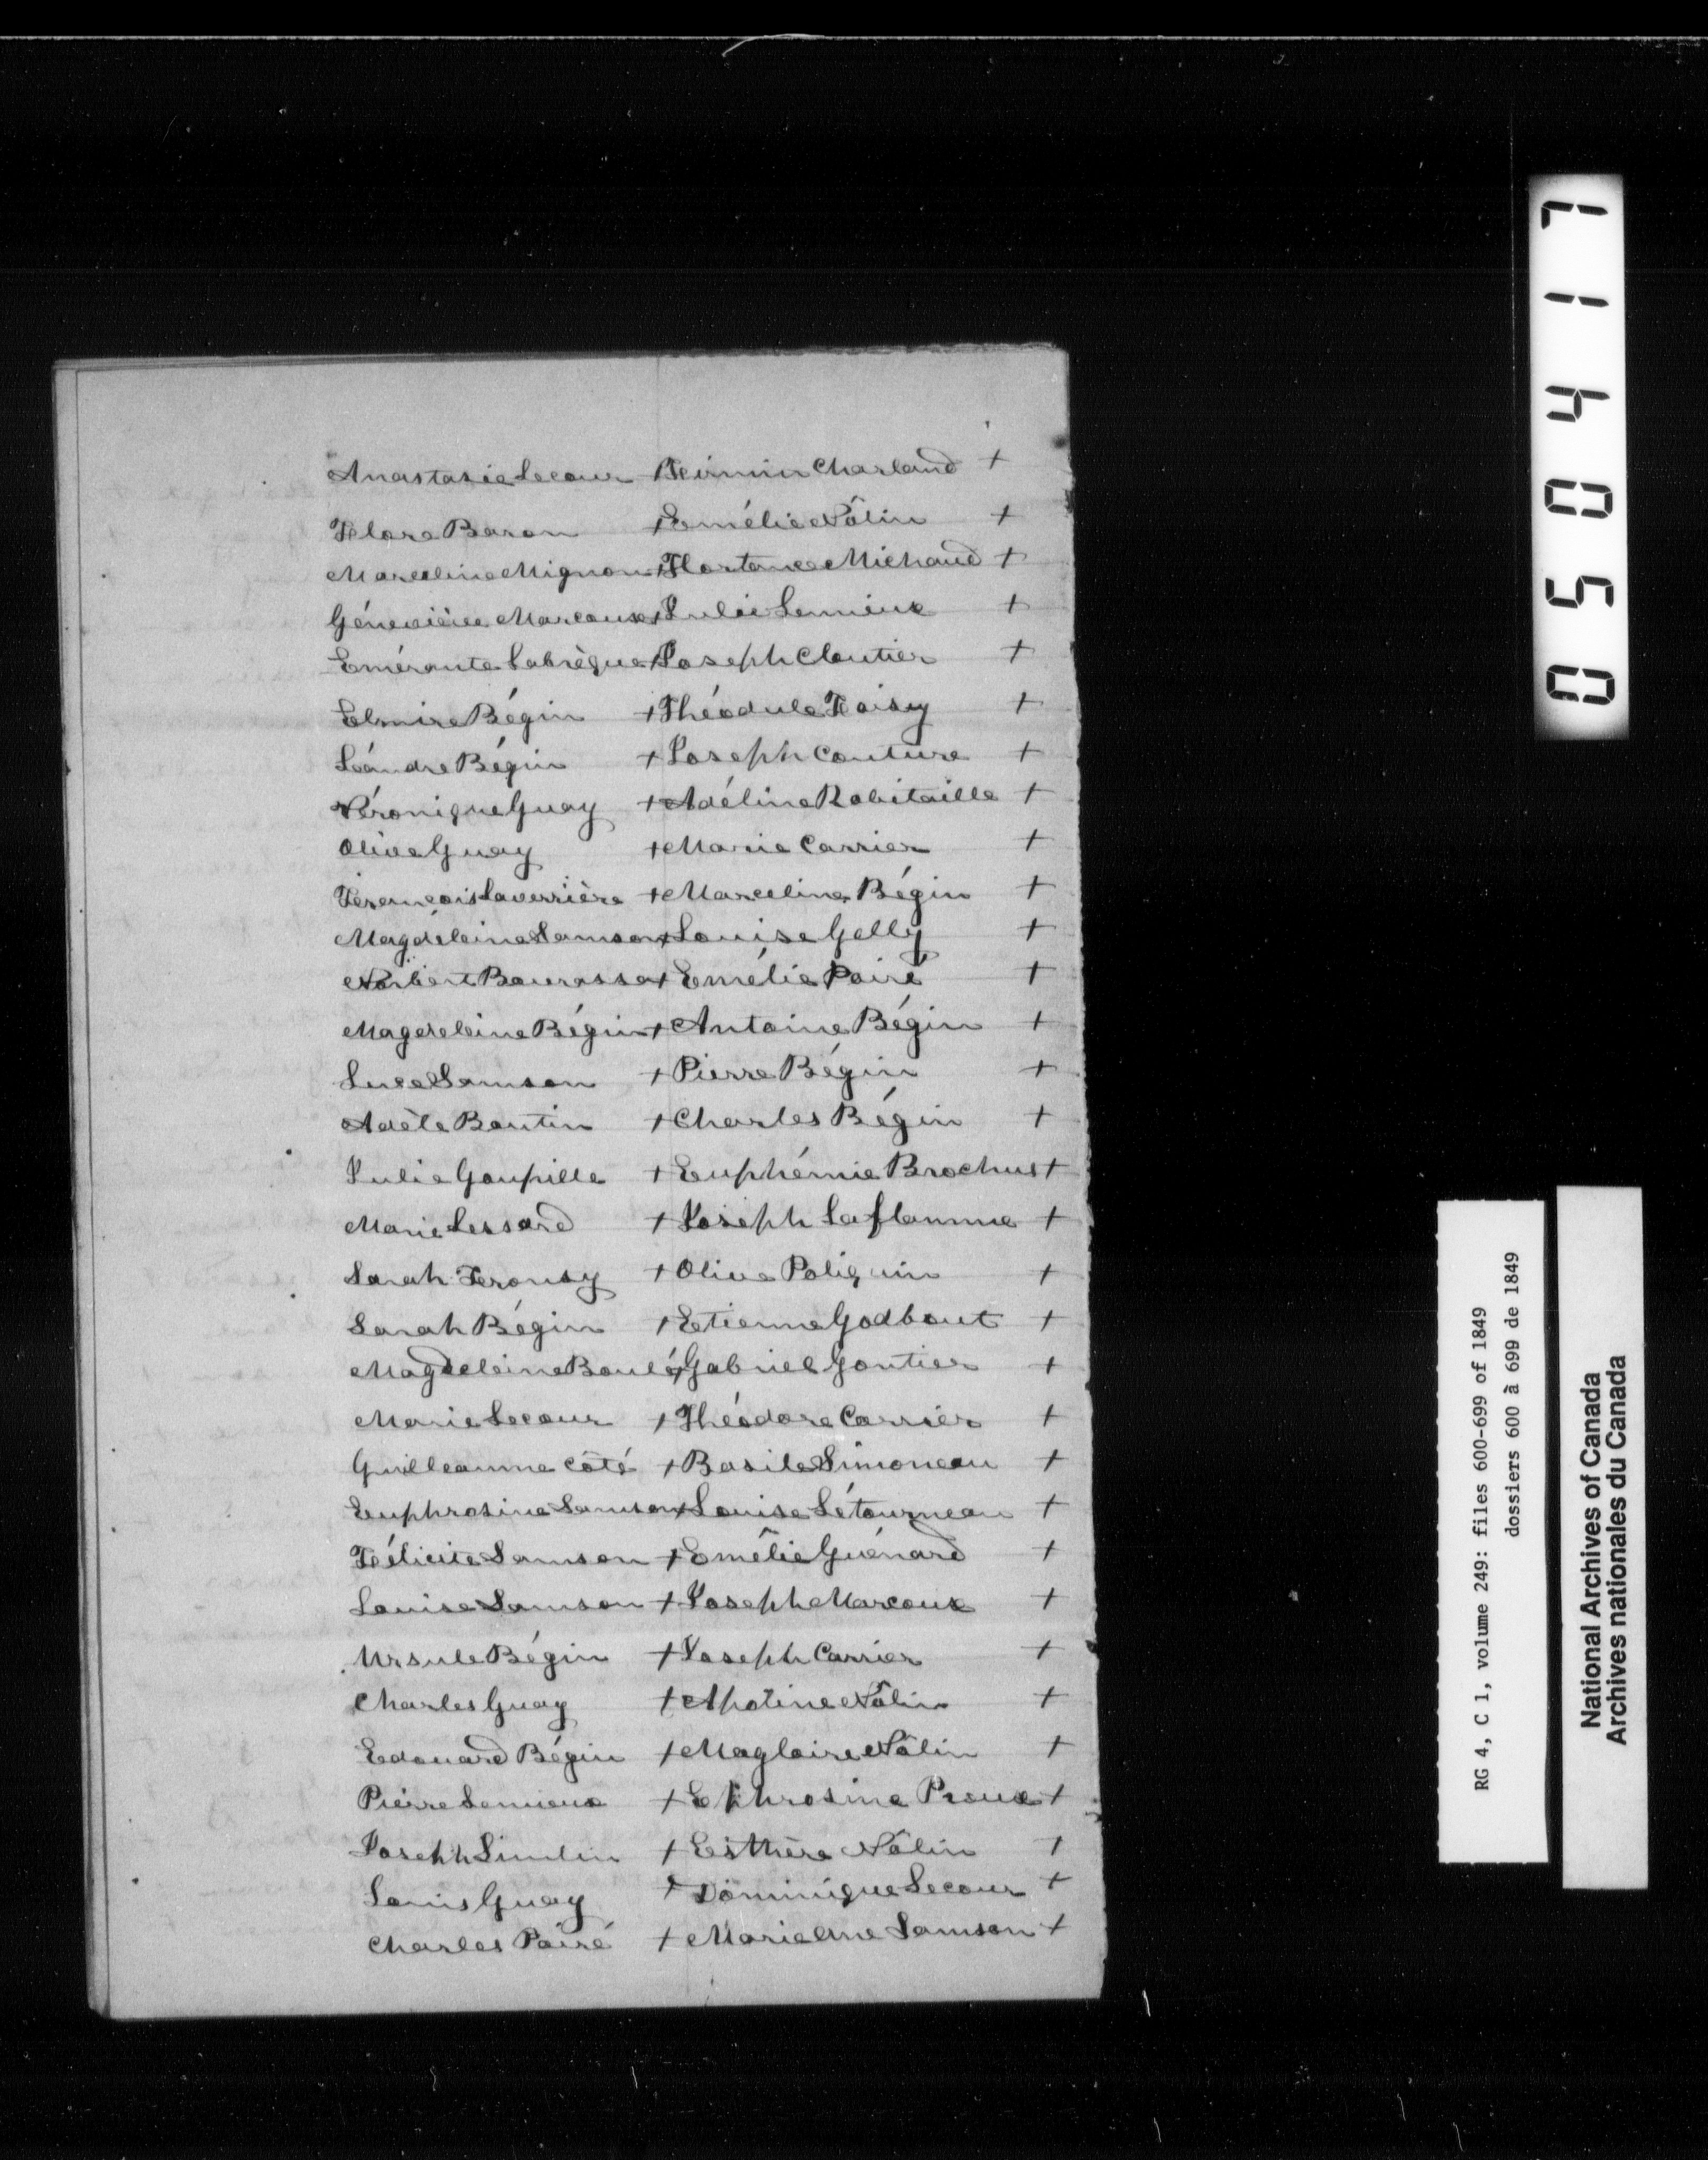 Anastasie Lecour + Firmin Charland +
Flore Baron + Emélie Nôlin +
Marceline Mignon + Hortance Michaud +
Généviève Marcoux + Julie Lemieux +
Emérante Labrègue + Joseph Cloutier +
Elmire Bégin + Théodule Foisy +
Léandre Bégin + Joseph Couture +
Véronique Guay + Adéline Robitaille +
Olive Guay + Marie Carrier +
François Laverrière + Marceline Bégin +
Magdeleine Samson + Louise Gelly +
Norbert Bourassa + Emélie Poiré +
Magdeleine Bégin + Antoine Bégin +
Luce Samson + Pierre Bégin +
Adèle Boutin + Charles Bégin +
Julie Goupille + Euphémie Brochus +
Marie Lessard + Joseph Laflamme +
Sarah + Olive Poliquin +
Sarah Bégin + Etienne Godbout +
Magdeleine Boulé + Gabriel Gontier +
Marie Lecour + Théodore Carrier +
Guilleaume Côté + Basile Simoneau +
Euphrosine Samson + Louise Létourneau +
Félicite Samson + Emélie Guénard +
Louise Samson + Joseph Marcoux +
Ursule Bégin + Joseph Carrier +
Charles Guay + Apoline Nôlin +
Edouard Bégin + Magloire Nôlin +
Pierre Lemieux + Ephrosine Proux +
Joseph + Esthère Nôlin +
Louis Guay + Dominique Lecour +
Charles Poiré + Marie Ane Samson +
050417
RG 4, C 1, volume 249: files 600-699 of 1849
dossiers 600 à 699 de 1849
National Archives of Canada
Archives nationales du Canada